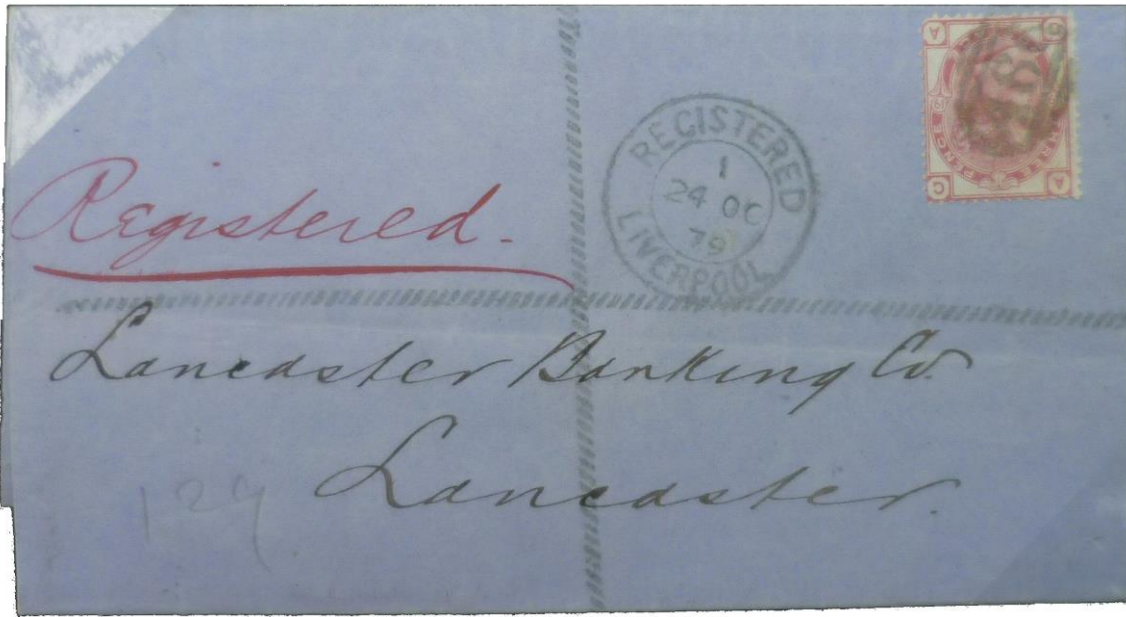 Registered.
REGISTERED
1
24 OC
79
LIVERPOOL
Lancaster Banking Co.
Lancaster.
129
A
G
G
A
THREE PENCE